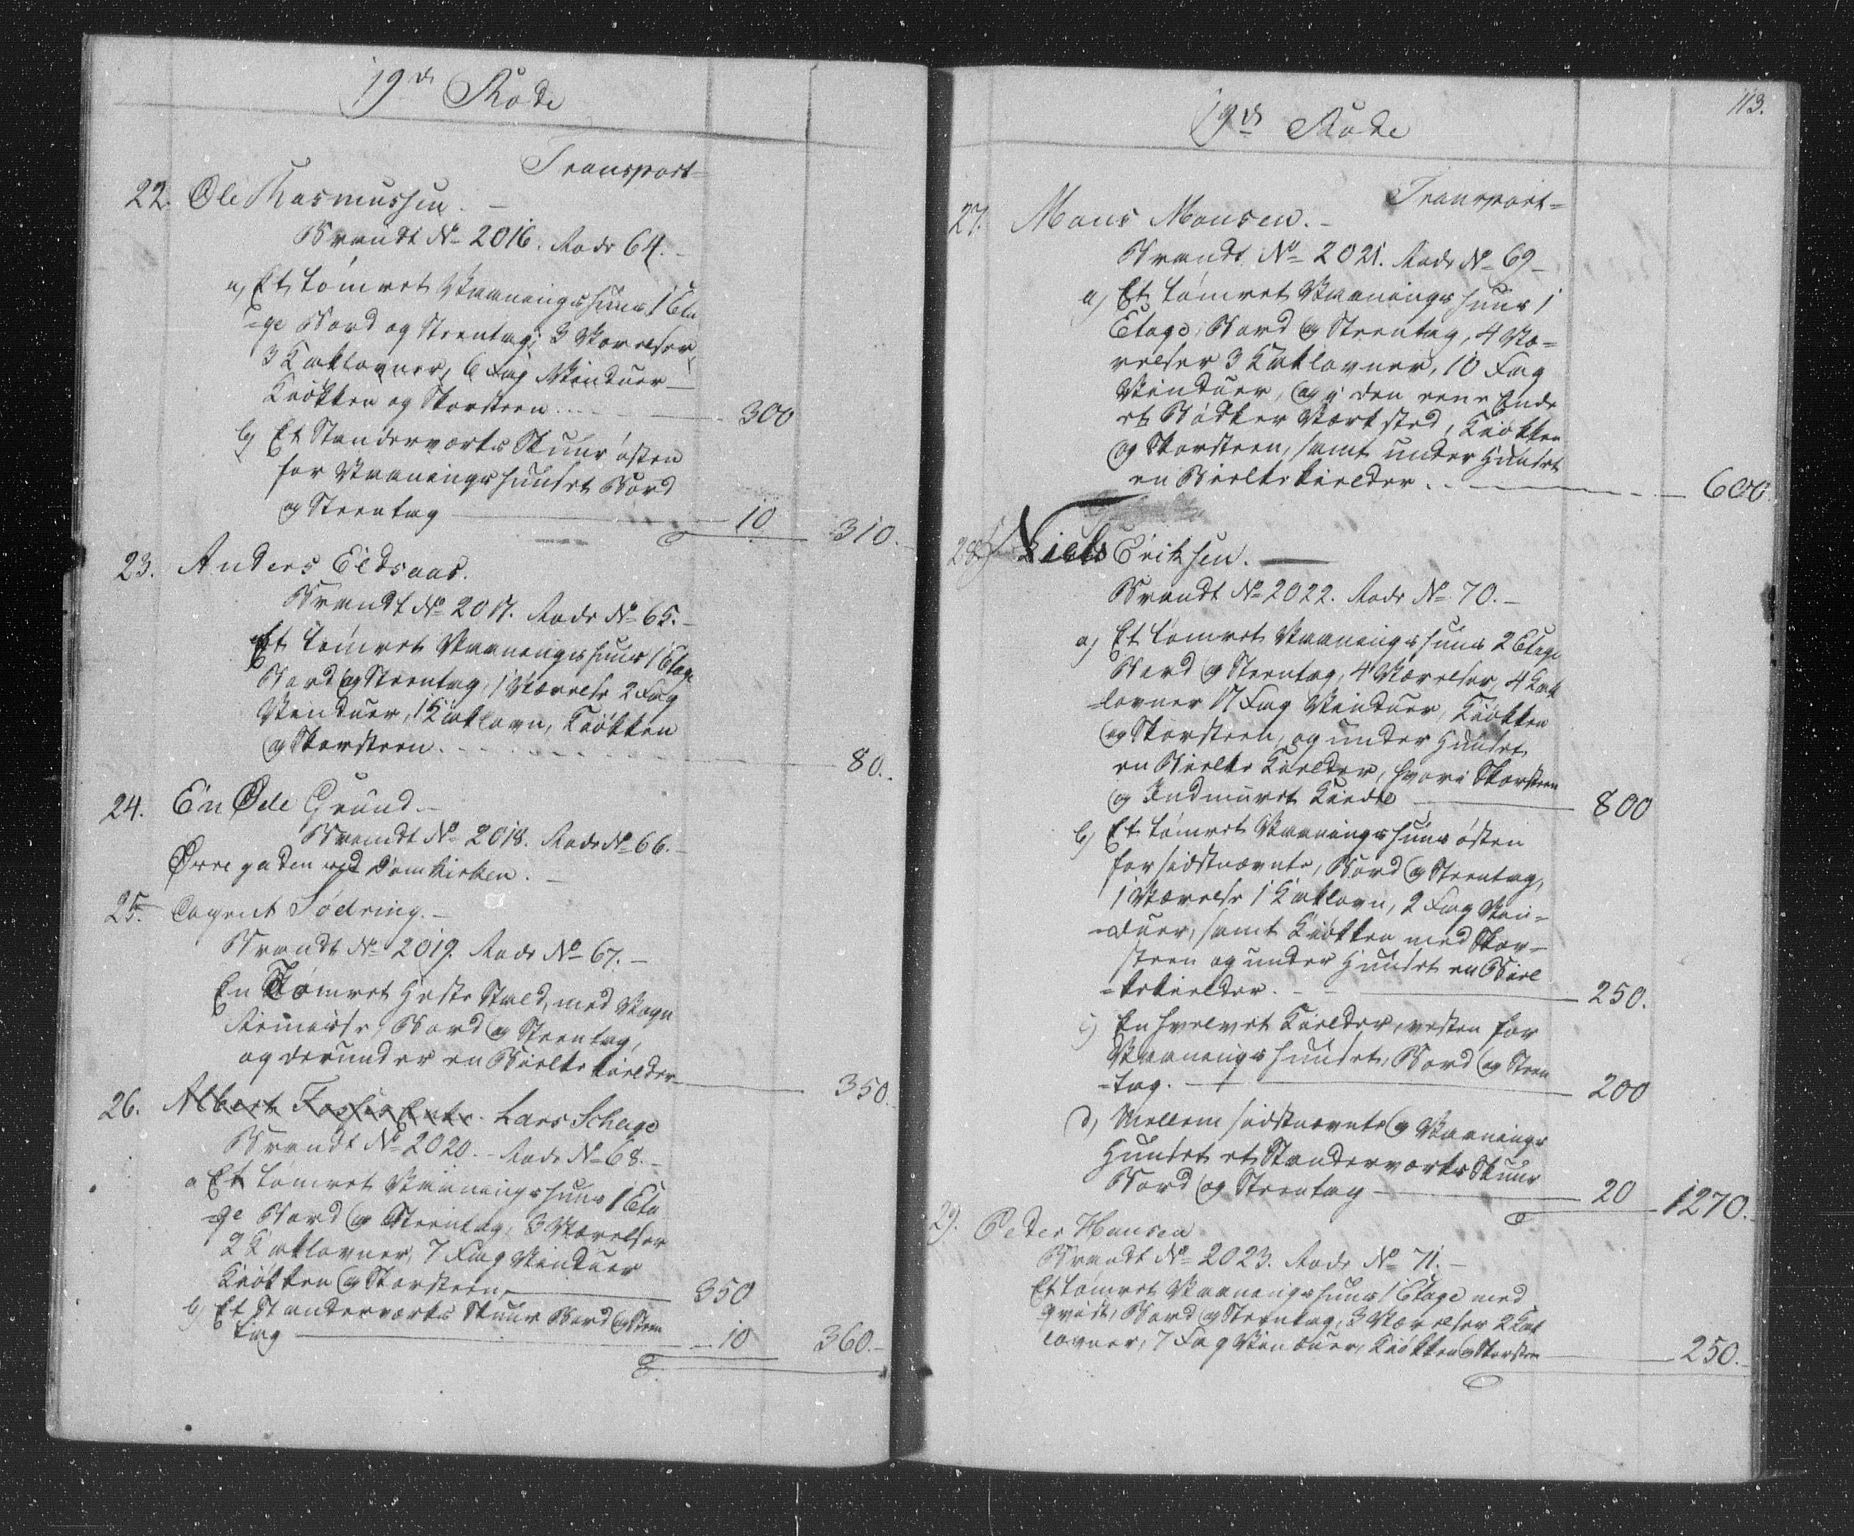 19de Rode
Transport
22. Ole Rasmussen. –
Brandt No 2016. Rode 64. –
a) Et tømret Vaaningshuus 1 Eta
=ge Bord og Steentag; 3 Værelser
3 Kaklovner, 6 Fag Vinduer –
Kiökken og Skorsteen . . . 300
b) Et Standerværks Skuur østen
for Vaaningshuuset Bord
og Steentag 10 310.
23. Anders Eidsaas.
Brandt No 2017. Rode No 65. –
Et tømret Vaaningshuus 1 Etage
Bord og Steentag, 1 Værelse 2 Fag
Vinduer, 1 Kaklovn, Kiökken
og Skorsteen. 80.
24. En Øde Grund. –
Brandt No 2018. Rode No 66. –
Øvregaden ved Domkirken. –
25. Agent Sødring. –
Brandt No 2019. Rode No 67. –
En Tømret Heste Stald, med Vogn
Remisse, Bord og Steentag,
og derunder en Bielkekielder 350.
26. Albert Enke. Lars Schage
Brandt No 2020. – Rode No 68. –
a Et tømret Vaaningshuus 1 Eta
=ge Bord og Steentag, 3 Værelser
2 Kaklovner, 7 Fag Vinduer
Kiökken og Skorsteen, 350
b) Et Standerværks Skuur Bord og Steen
tag 10 360.
113.
19de Rode
Transport
27. Mons Monsen. –
Brandt No 2021. Rode No 69 –
a) Et tømret Vaanings huus 1
Etage, Bord og Steentag, 4 Væ=
relser 3 Kaklovner, 10 Fag
Vinduer, og i den eene Ende
et Bødker Værksted, Kiökken
og Skorsteen, samt under Huuset
en Bielkekielder. 600.
28. Niels Eriksen. –
Brandt No 2022. Rode No 70. –
a) Et tømret Vaaningshuus 2 Etage
Bord og Steentag, 4 Værelser, 4 Kak
=lovner 17 Fag Vinduer, Kiökken
og Skorsteen, og under Huuset
en Bielke Kielder, hvori Skorsteen
og Indmuret Kiedel 800
b) Et tømret Vaaningshuus østen
for sidstnævnte, Bord og Steentag,
1 Værelse 1 Kaklovn, 2 Fag Vin=
=duer, samt Kiökken med Skor=
steen og under Huuset en Biel
=kekielder. 250.
c) En hvelvet Kielder, vesten for
Vaaningshuuset, Bord og Steen
=tag. 200
d) Mellem sidstnævnte og Vaanings
Huuset et Standerværks Skuur
Bord og Steentag 20 1270.
29. Peder Hansen
Brandt No 2023. Rode No 71. –
Et tømret Vaaningshuus 1 Etage med
Qvist, Bord og Steentag, 3 Værelser 2 Kak
lovner, 7 Fag Vinduer, Kiökken og Skorsteen 250.